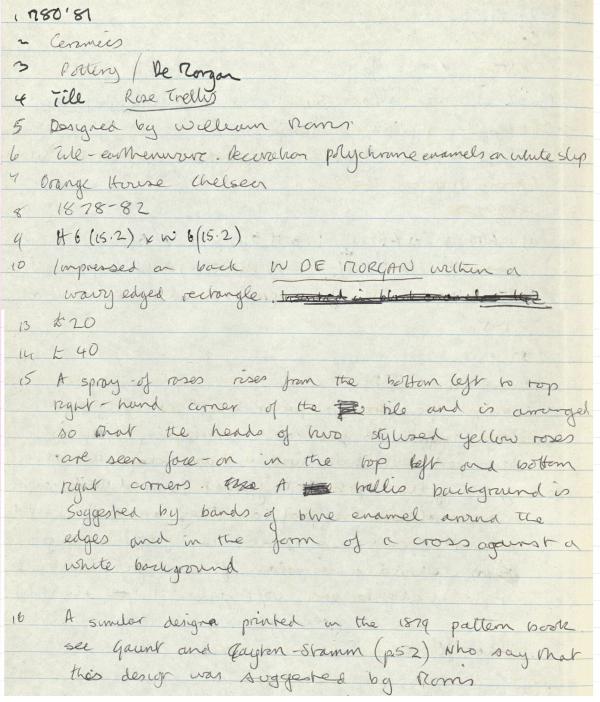 1 1780'81
2 Ceramics
3 Pottery / De Morgan
4 Tile Rose Trellis
5 Designed by William Morris
6 Tile - earthenware. Decoration polychrome enamels on white slip
7 Orange House Chelsea
8 1878-82
9 H 6 (15.2) x W 6 (15.2)
10 Impressed on back W DE MORGAN within a
wavy edged rectangle.
13 £20
14 £ 40
15 A spray of roses rises from the bottom left to top
right-hand corner of the tile and is arranged
so that the heads of two stylised yellow roses
are seen face-on in the top left and bottom
right corners. A trellis background is
suggested by bands of blue enamel around the
edges and in the form of a cross against a
white background
16 A similar design printed in the 1879 pattern book
see Gaunt and Clayton-Stamm (p52) who say that
this design was suggested by Morris